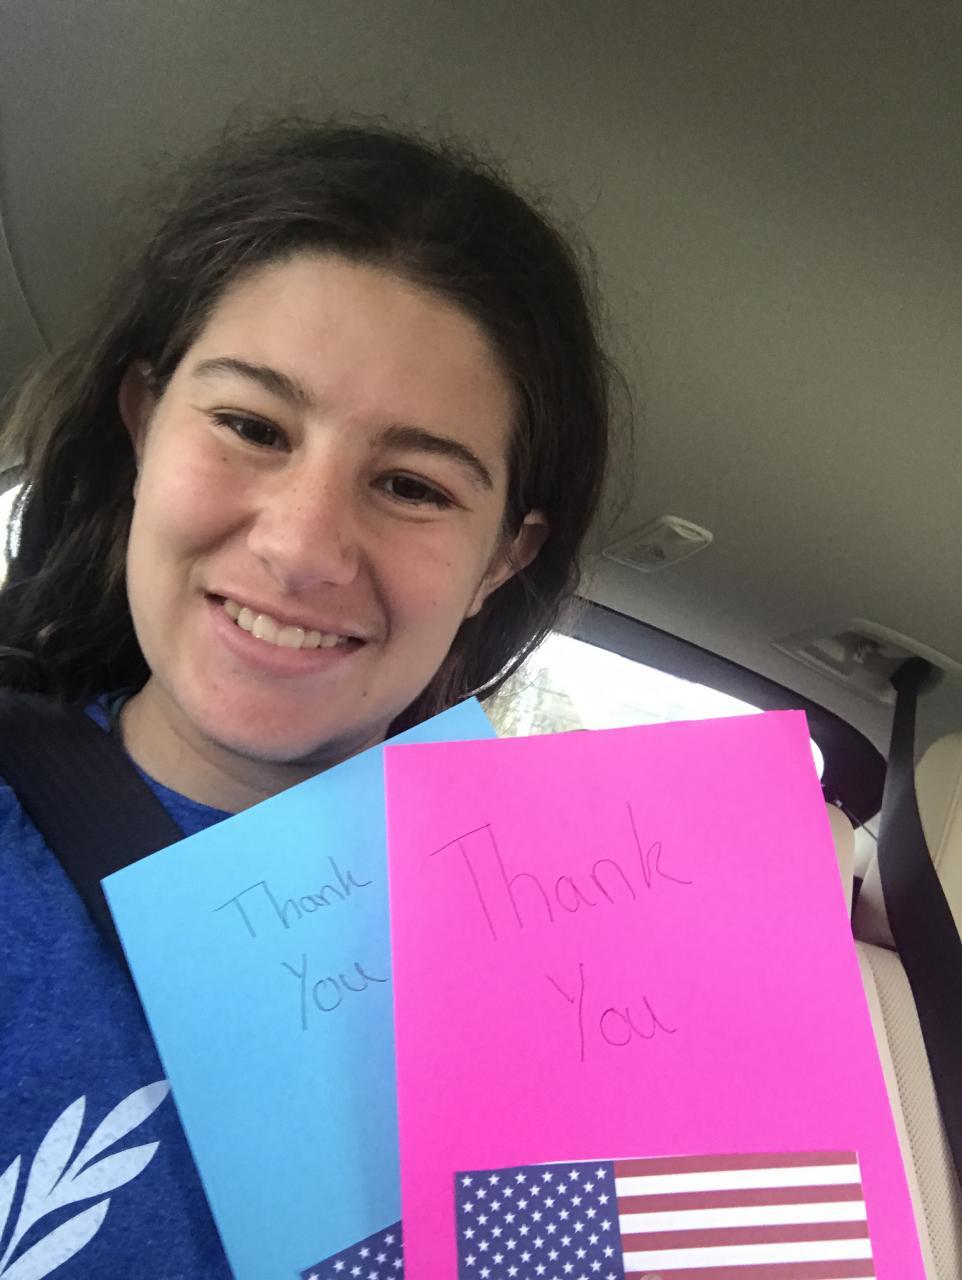 Thank
You
Thank
You